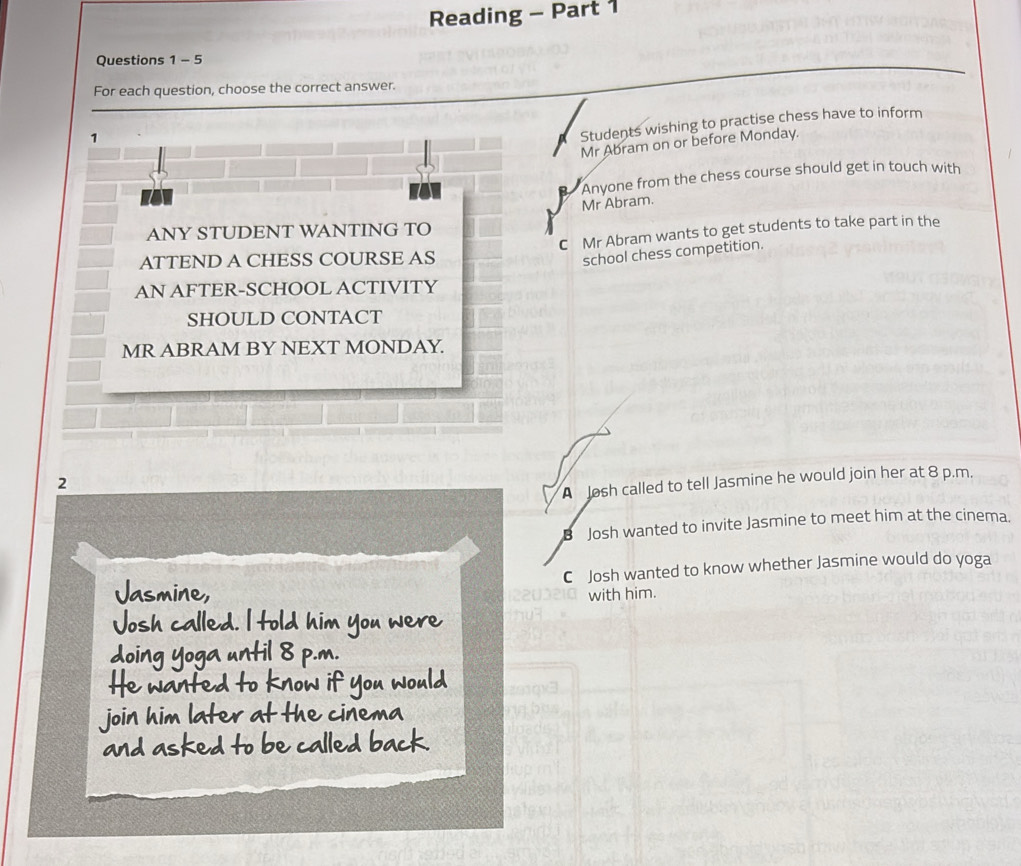 Reading – Part 1
Questions 1 – 5
For each question, choose the correct answer.
1
ANY STUDENT WANTING TO
ATTEND A CHESS COURSE AS
AN AFTER-SCHOOL ACTIVITY
SHOULD CONTACT
MR ABRAM BY NEXT MONDAY.
A Students wishing to practise chess have to inform
Mr Abram on or before Monday.
B Anyone from the chess course should get in touch with
Mr Abram.
C Mr Abram wants to get students to take part in the
school chess competition.
2
Jasmine,
Josh called. I told him you were
doing yoga until 8 p.m.
He wanted to know if you would
join him later at the cinema
and asked to be called back.
A Josh called to tell Jasmine he would join her at 8 p.m.
B Josh wanted to invite Jasmine to meet him at the cinema.
C Josh wanted to know whether Jasmine would do yoga
with him.